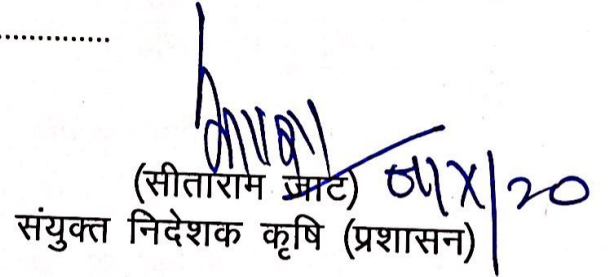 ..............
(सीताराम जाट)
संयुक्त निदेशक कृषि (प्रशासन)